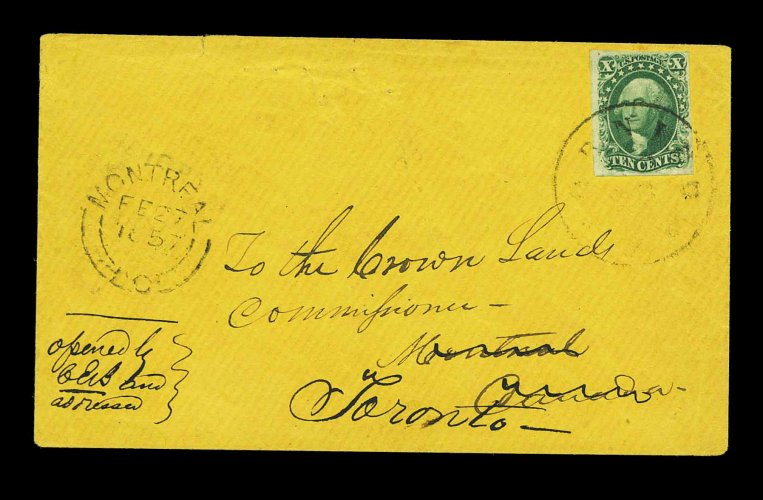 X U.S. POSTAGE X
TEN CENTS
MONTREAL
FE 27
1857
To the Crown Lands
Commissioner –
Montreal
Canada –
Toronto –
opened by
and
addressed